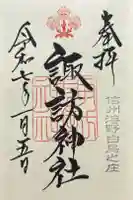 奉拝
信州海野白鳥之庄
諏訪神社
令和七年 月五日